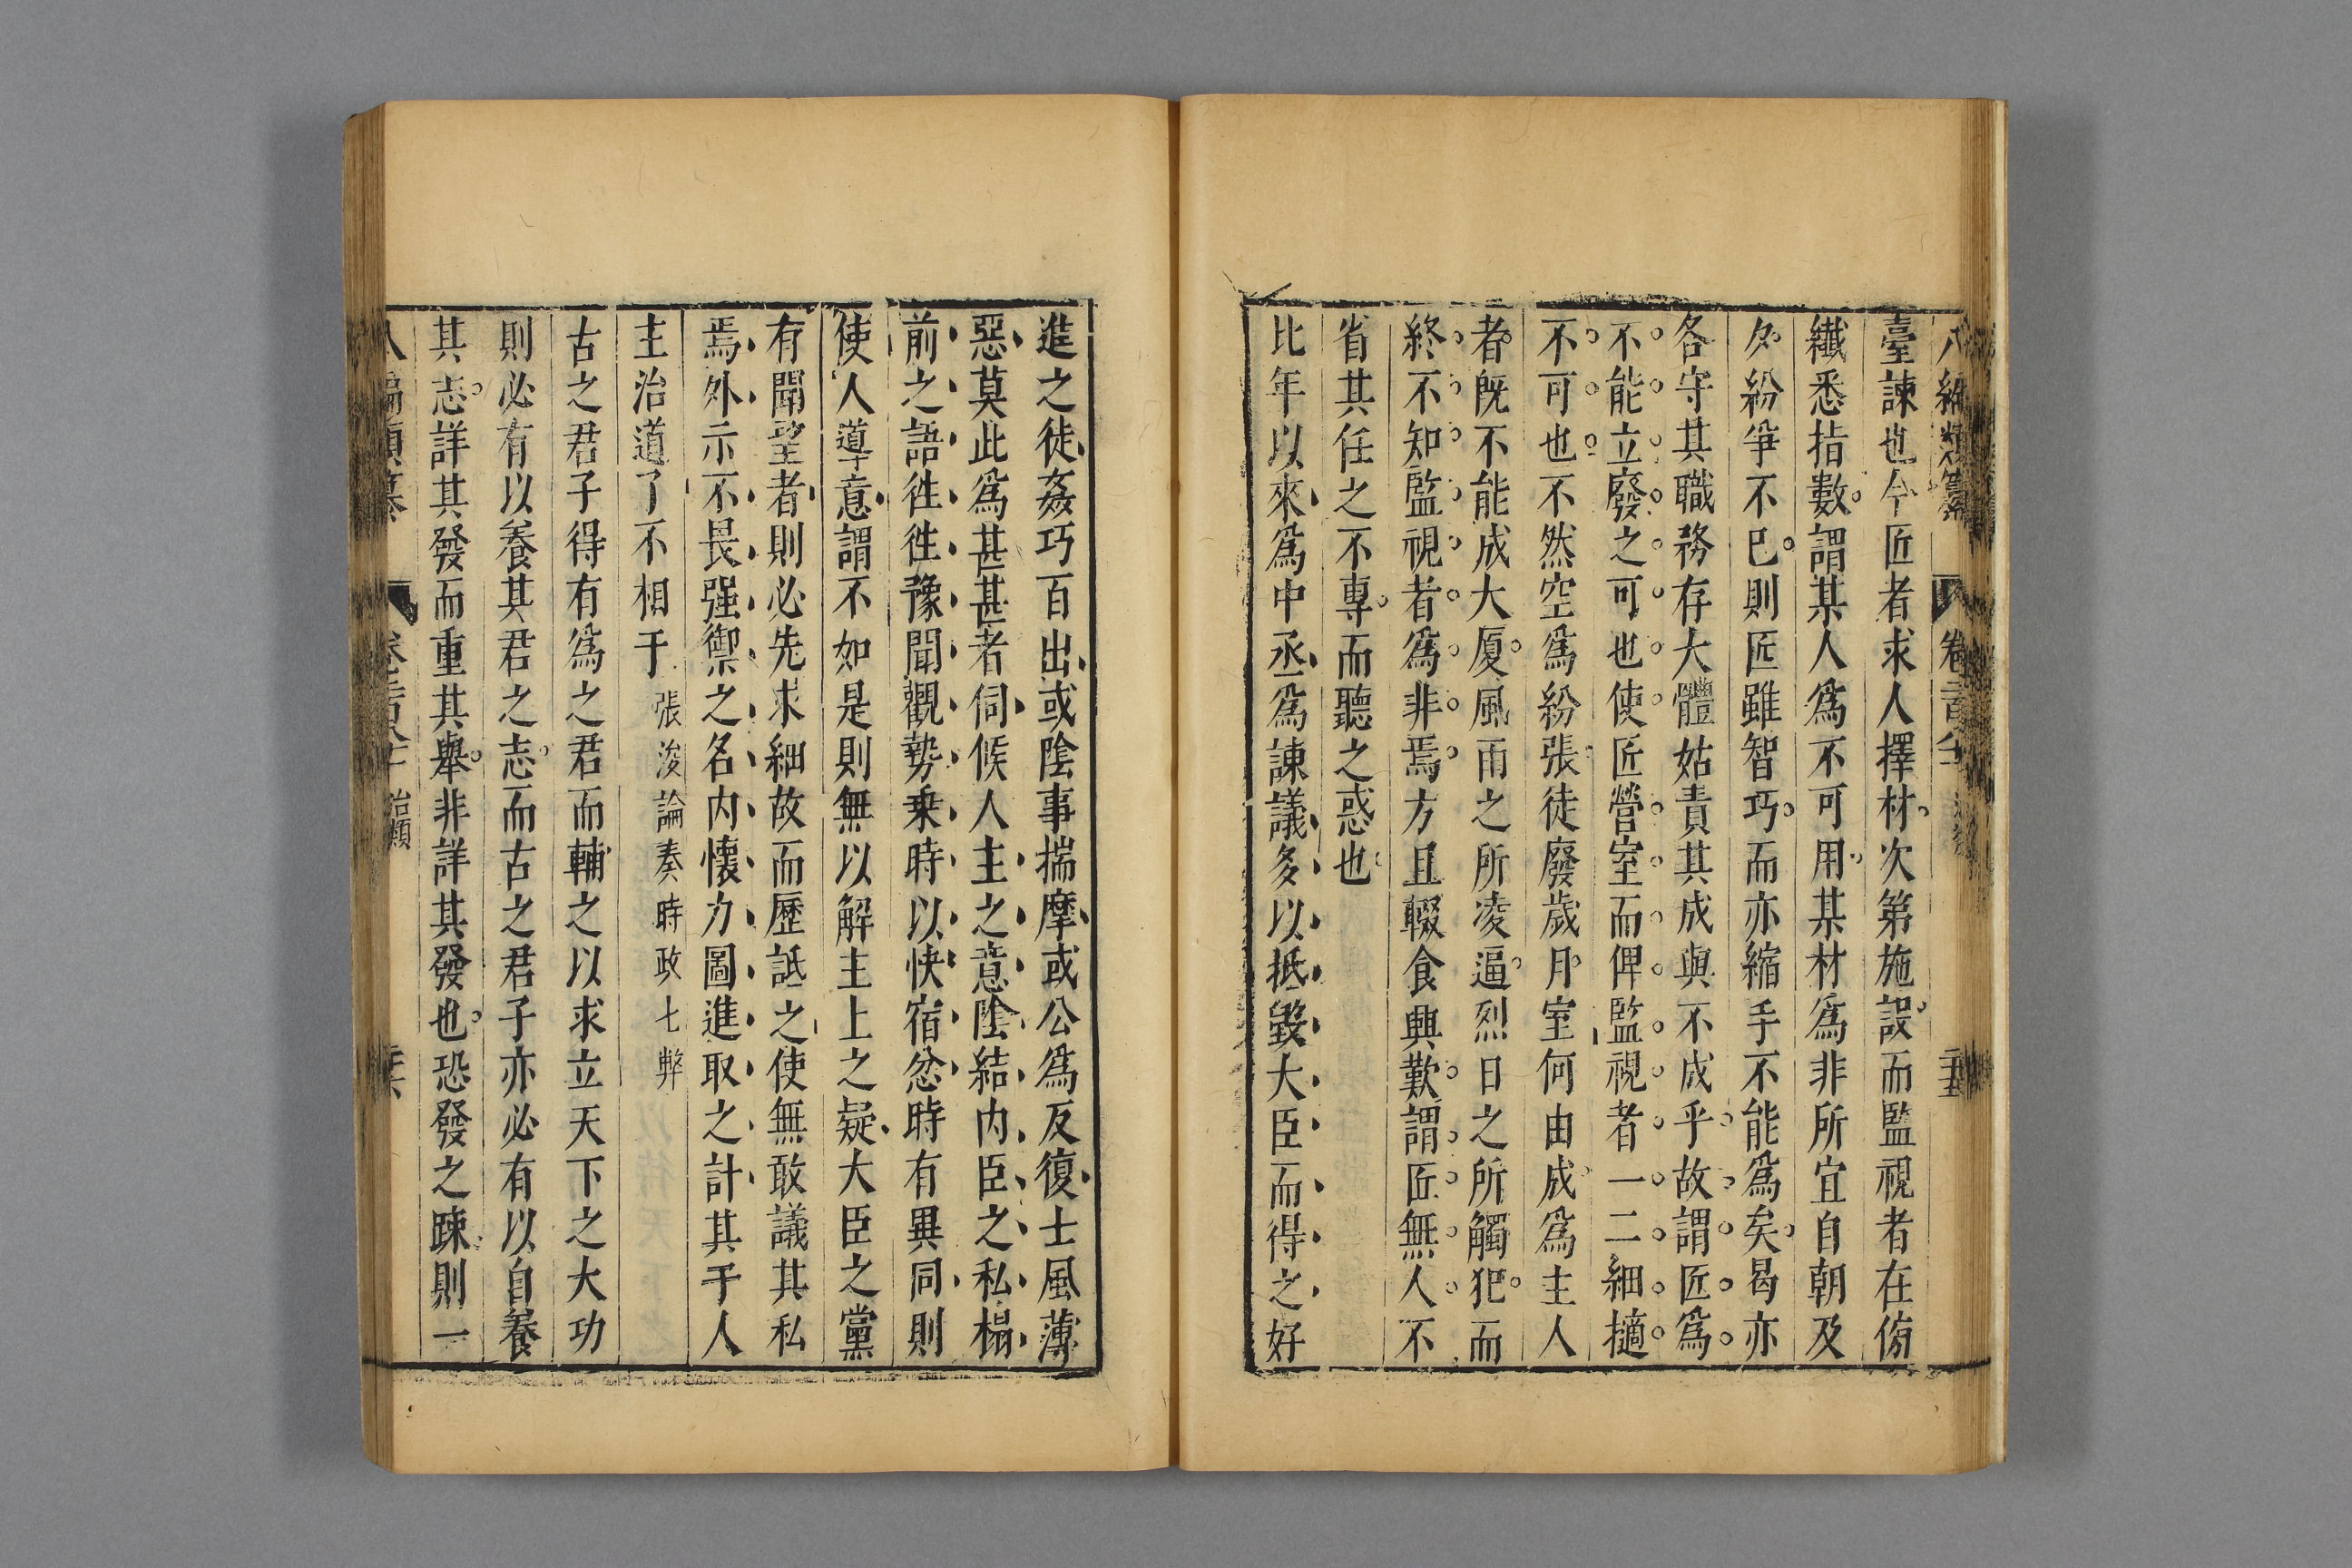 八編類纂 卷 二十五
臺諫也今匠者求人擇材次第施設而監視者在傍
纖悉指數謂某人爲不可用某材爲非所宜自朝及
夕紛爭不已則匠雖智巧而亦縮手不能爲矣曷亦
各守其職務存大體姑責其成與不成乎故謂匠爲
不能立廢之可也使匠營室而俾監視者一二細擿
不可也不然空爲紛張徒廢歲月室何由成爲主人
者旣不能成大厦風雨之所凌逼烈日之所觸犯而
終不知監視者爲非焉方且輟食興歎謂匠無人不
省其任之不專而聽之惑也
比年以來爲中丞爲諫議多以抵毀大臣而得之好
進之徒姦巧百出或陰事揣摩或公爲反復士風薄
惡莫此爲甚甚者伺候人主之意陰結內臣之私榻
前之語徃徃豫聞觀勢乗時以快宿忿時有異同則
使人導意謂不如是則無以解主上之疑大臣之黨
有聞望者則必先求細故而歷詆之使無敢議其私
焉外示不畏强禦之名内懷力圖進取之計其于人
主治道了不相于 張浚論奏時政七弊
古之君子得有爲之君而輔之以求立天下之大功
則必有以養其君之志而古之君子亦必有以自養
其志詳其發而重其舉非詳其發也恐發之疎則一
八編類纂 治類